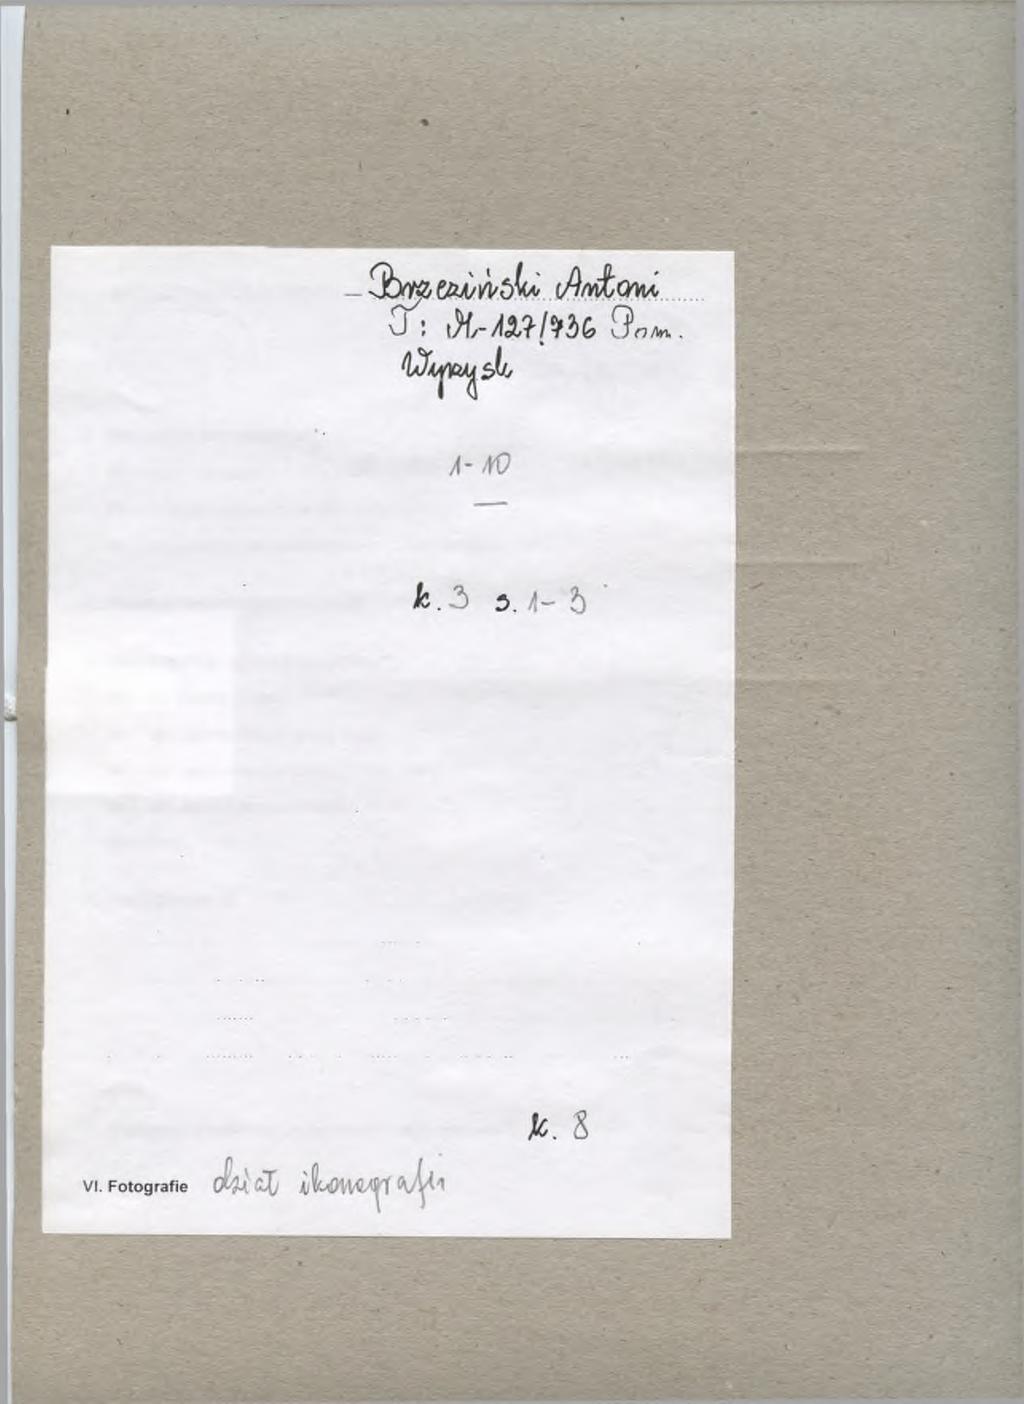 Brzeziński Antoni
T: M-127/736 Pom.
Wyrzysk
1-10
k. 3 s. 1-3
k. 8
VI. Fotografie dział ikonografii